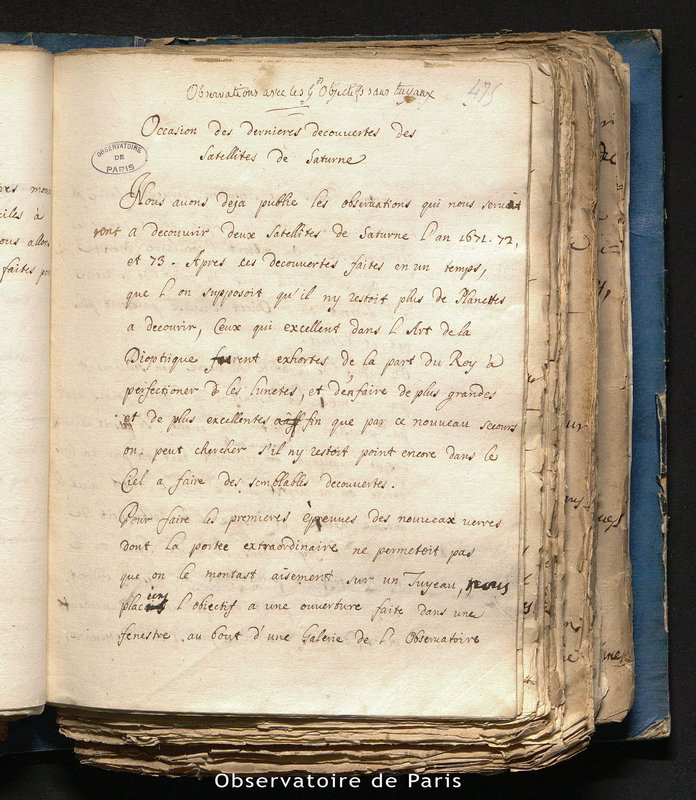 Observations avec les Gds Objectifs sans tuyaux
475
Occasion des dernieres decouvertes des
Satellites de Saturne
OBSERVATOIRE
DE
PARIS
Nous avons deja publié les observations qui nous servi
rent a decouvrir deux Satellites de Saturne l'an 1671. 72,
et 73. Apres ces decouvertes faites en un temps,
que l on supposoit qu'il ny restoit plus de Planettes
a decouvrir, Ceux qui excellent dans l Art de la
Dioptrique furent exhortes de la part du Roy à
perfectioner les lunetes, et d'en faire de plus grandes
et de plus excellentes affin que par ce nouveau secours
on peut chercher s'il ny restoit point encore dans le
Ciel a faire des semblables decouvertes.
Pour faire les premieres épreuves des nouveaux verres
dont la portée extraordinaire ne permetoit pas
que on le montast aisement sur un Tuyeau, nous
l'obiectif a une ouverture faite dans une
fenestre au bout d'une Galerie de l'Observatoire
mon
ciles à
ous allon
faites
Observatoire de Paris